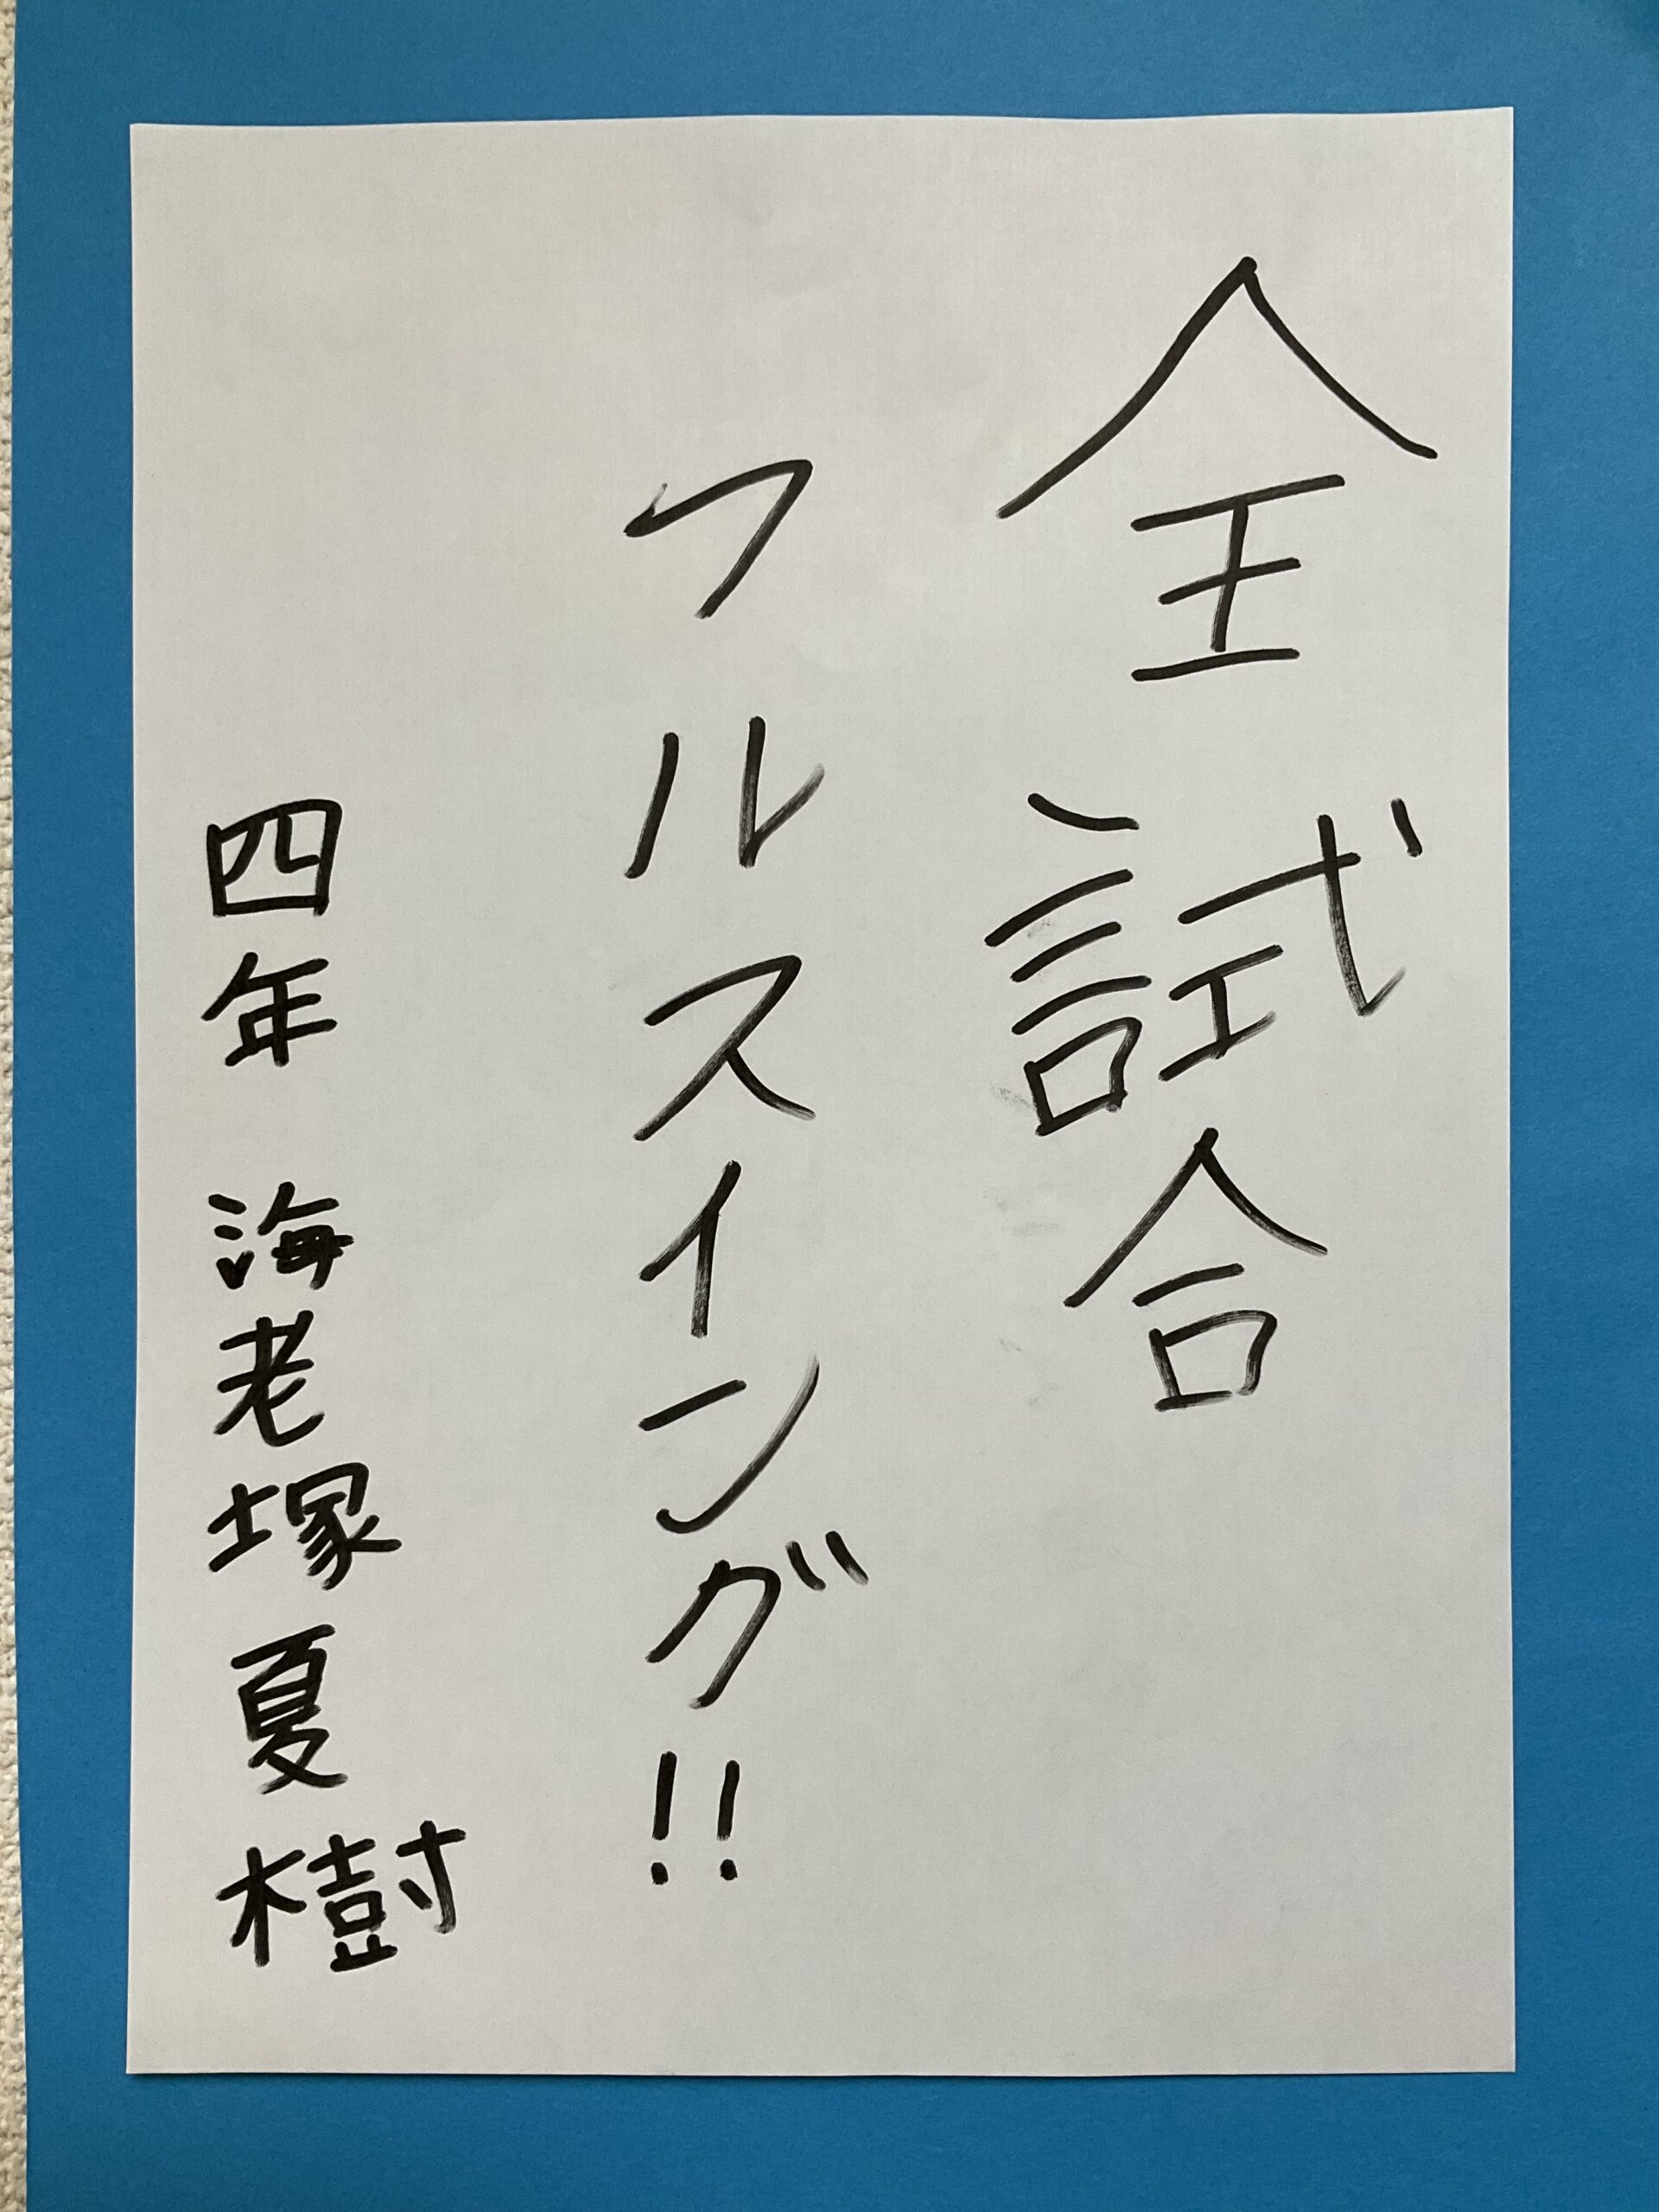 全試合
フルスイング!!
四年 海老塚夏樹